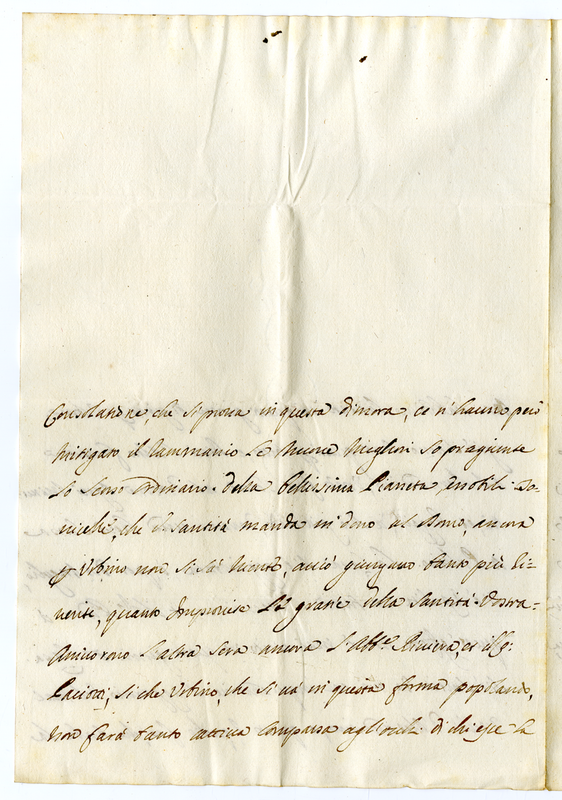 Consolatione, che si prova in questa dimora, ce n'hanno però
mitigato il rammarico le nuove migliori sopragiunte
lo scorso ordinario. Della bellissima Pianeta, e nobili To-
nicelle, che V. Santità manda in dono al Domo, ancora
p Urbino non si sà niente, acciò giungano tanto più ri-
verite, quanto improvise le gratie della Santità Vostra.
Arrivorono l'altra sera ancora l'Abb.e Riviera, et il Sig.
Paciotti, si che Urbino, che si và in questa forma popolando,
non farà tanto cattiva comparsa agl'occhi di chi esce la